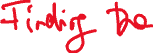 Finding Do